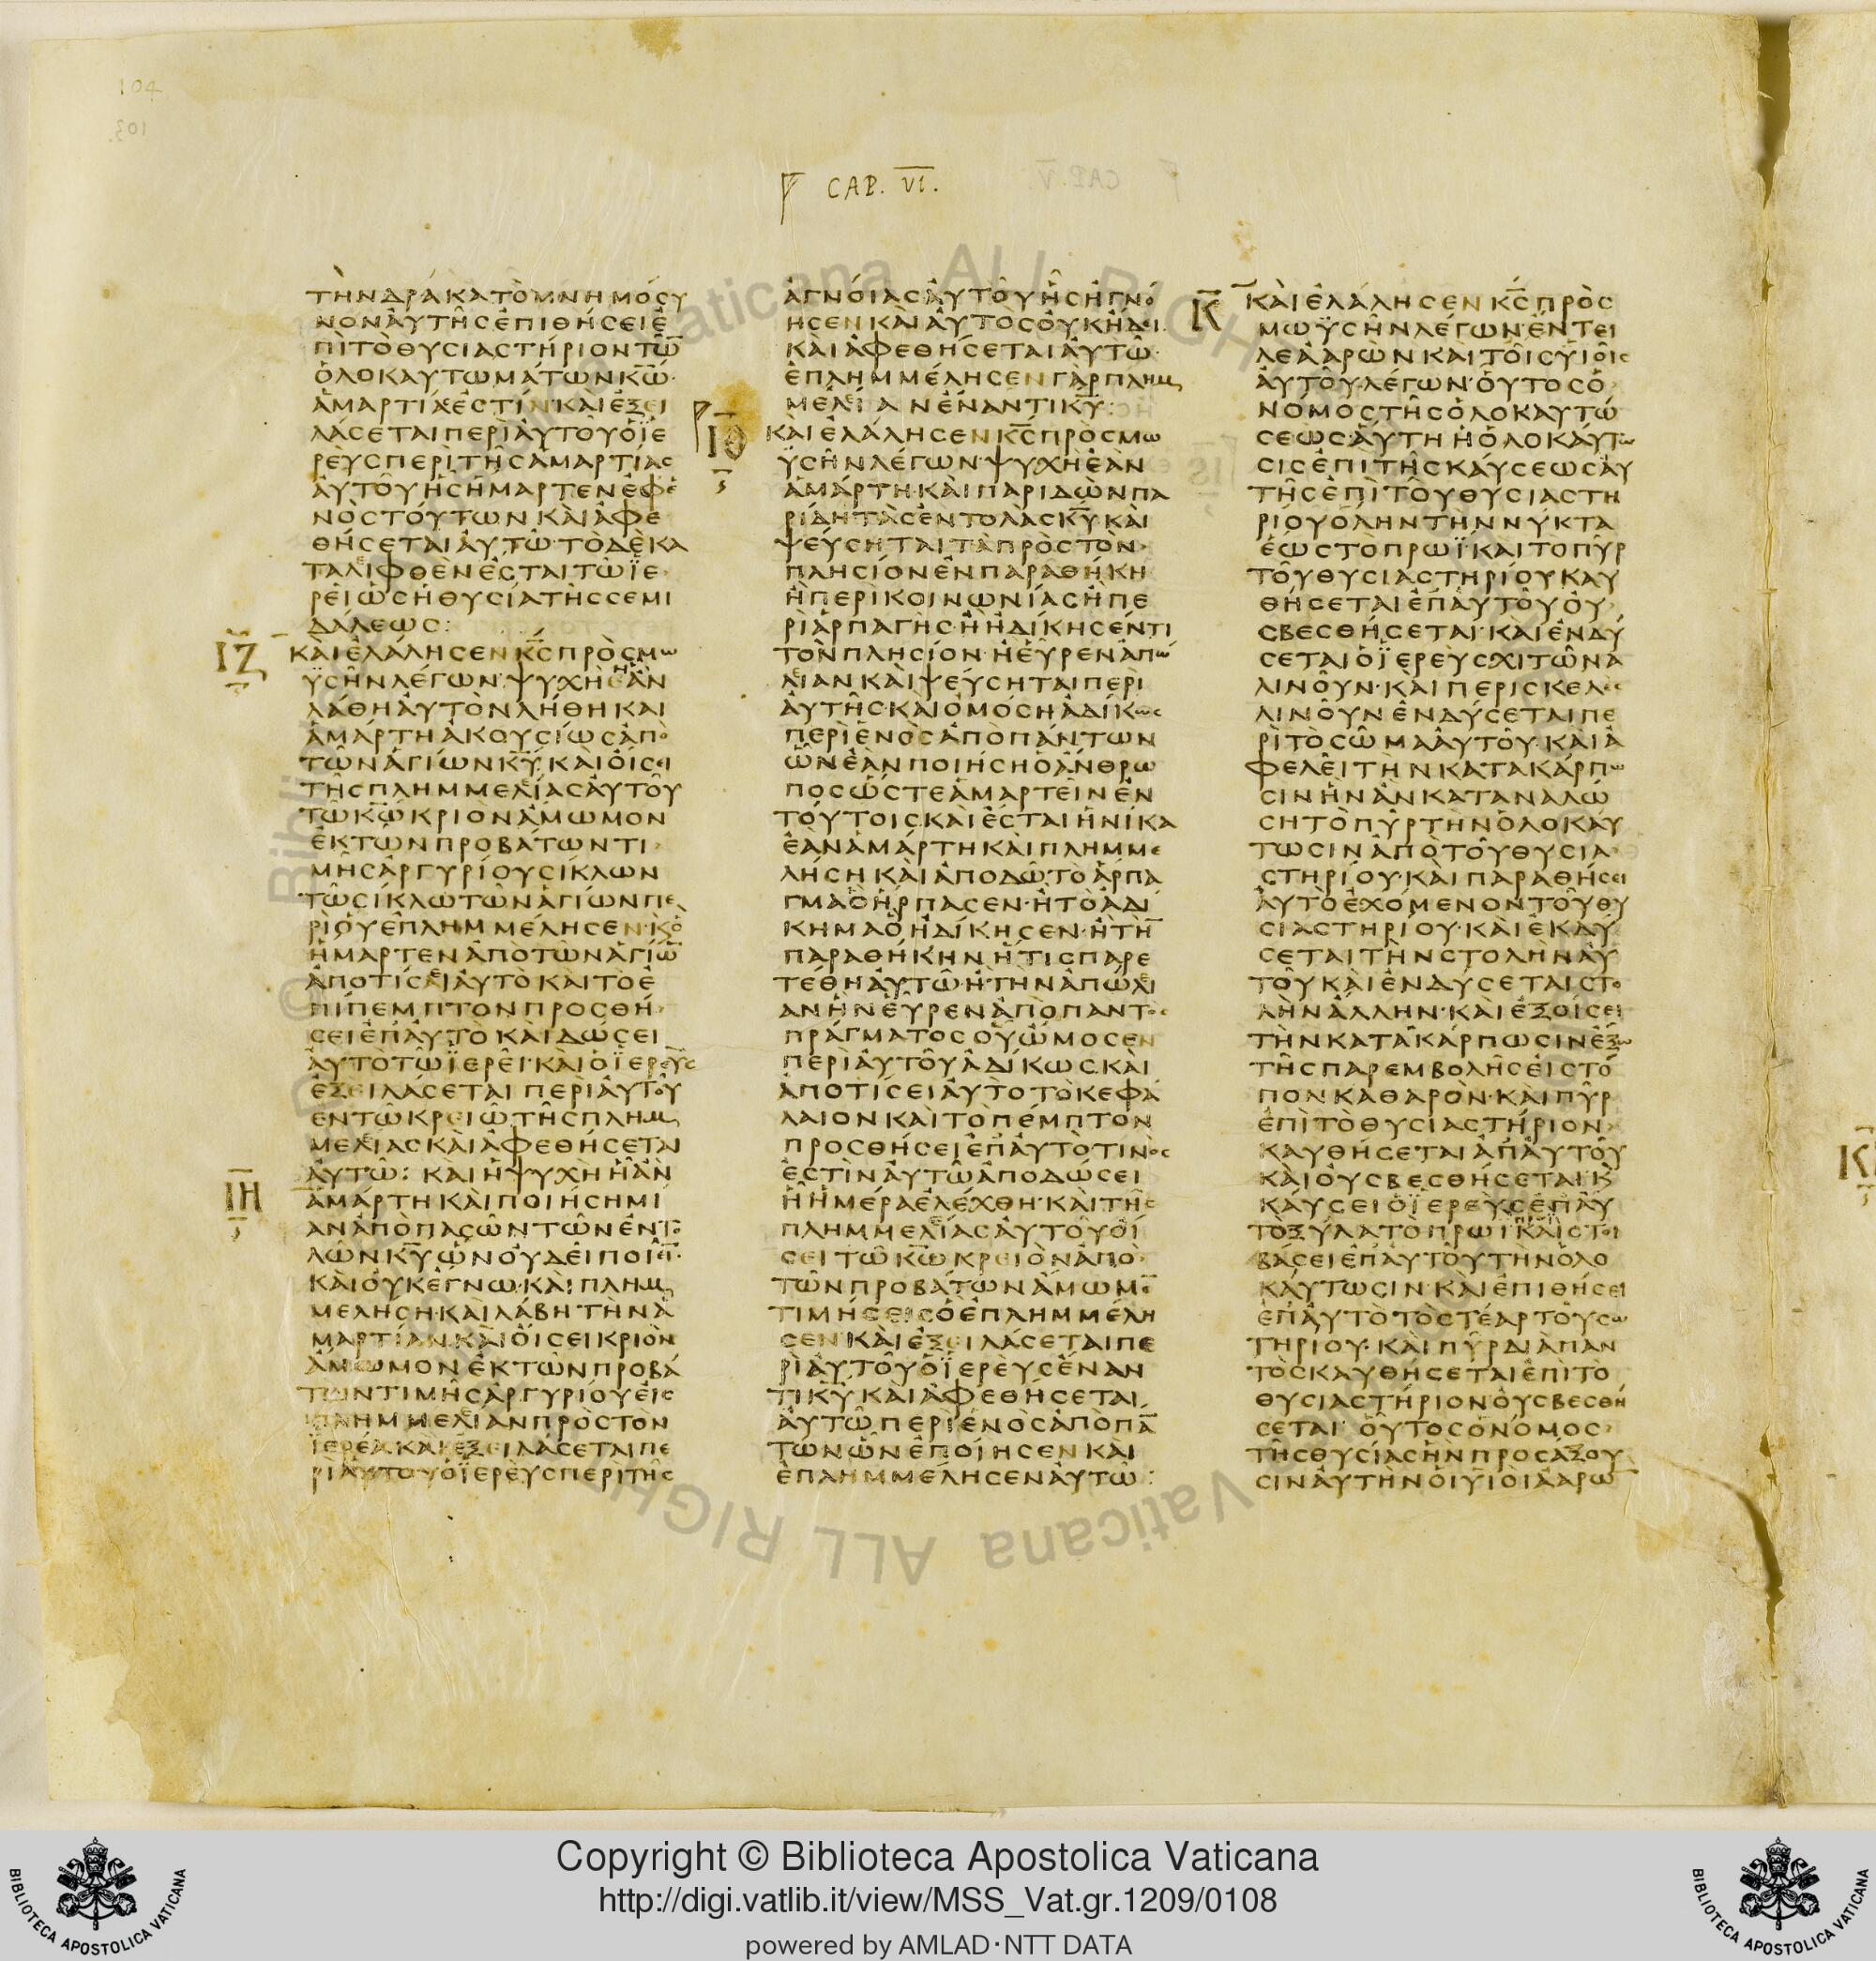 104
103
CAP. VI.
ΤῊΝΔΡΆΚΑΤῸΜΝΗΜΌΣΥ
ΝΟΝἈΥΤΗ͂ΣἘΠΙΘΉΣΕΙἘ
ΠῚΤῸΘΥΣΙΑΣΤΉΡΙΟΝΤΩ̅
ὉΛΟΚΑΥΤΩΜΆΤΩΝΚ̅Ω̅·
ἉΜΑΡΤΊΑἘΣΤΊΝ·ΚΑΙἘΞΕΙ
ΛΆΣΕΤΑΙΠΕΡῚἈΥΤΟΥὉΪΕ
ΡΕῪΣΠΕΡῚΤΗ͂ΣἉΜΑΡΤΊΑΣ
ἈΥΤΟΥ͂ἩΣἭΜΑΡΤΕΝἘΦΕ
ΝῸΣΤΟΎΤΩΝΚΑῚἈΦΕ
ΘΉΣΕΤΑΙἈΥΤΩ͂·ΤῸΔῈΚΑ
ΤΑΛΙΦΘῈΝἜΣΤΑΙΤΩ͂ΪΕ
ΡΕΙὩΣἩΘΥΣΊΑΤΗ͂ΣΣΕΜΙ
ΔΆΛΕΩΣ:
ΙΖ ΚΑῚἘΛΆΛΗΣΕΝΚ̅Σ̅ΠΡῸΣΜΩ
ΫΣΗ͂ΝΛΈΓΩΝ·ΨΥΧῊἘᾺΝ
ΛΆΘΗἈΥΤῸΝΛΉΘΗΚΑΙ
ἉΜΆΡΤΗἈΚΟΥΣΊΩΣἈΠΟ
ΤΩ͂ΝἉΓΊΩΝΚ̅Υ̅ΚΑῚὈΙΣΕΙ
ΤΗ͂ΣΠΛΗΜΜΕΛΙΑΣἈΥΤΟΥ͂
ΤΩ͂Κ̅Ω̅ΚΡΙῸΝἌΜΩΜΟΝ
ἘΚΤΩ͂ΝΠΡΟΒΆΤΩΝΤΙ
ΜΗ͂ΣἈΡΓΥΡΊΟΥΣΊΚΛΩΝ
ΤΩ͂ΣΊΚΛΩΤΩ͂ΝἉΓΊΩΝΠΕ
ΡῚὉΥἘΠΛΗΜΜΈΛΗΣΕΝ·ΚῸ
ἭΜΑΡΤΕΝἈΠῸΤΩ͂ΝἉΓΊΩ̅
ἈΠΟΤΊΣΑΙἈΥΤῸΚΑΙΤΟἘ
ΠΙΠΕΜΠΤΟΝΠΡΟΣΘΉ
ΣΕΙἘΠἈΥΤῸΚΑῚΔΏΣΕΙ
ἈΥΤῸΤΩ͂ΪΕΡΕΙ͂·ΚΑῚὉΪΕΡΕῪΣ
ἘΞΕΙΛΆΣΕΤΑΙΠΕΡῚἈΥΤΟΥ͂
ἘΝΤΩ͂ΚΡΕΙΩ͂ΤΗ͂ΣΠΛΗΜ
ΜΕΛΙΑΣΚΑῚἈΦΕΘΉΣΕΤΑΙ
ἈΥΤΩ͂: ΚΑΙἩΨΥΧΗἫἊΝ
ΙΗ ἉΜΆΡΤΗΚΑῚΠΟΙΉΣΗΜΙ
ΑΝἈΠῸΠΑΣΩ͂ΝΤΩ͂ΝἘΝΤΟ
ΛΩ͂ΝΚ̅Υ̅ὯΝΟΥΔΕΙΠΟΙΕΙ̅·
ΚΑῚΟΥΚἜΓΝΩ·ΚΑῚΠΛΗΜ
ΜΕΛΗΣΗ·ΚΑῚΛΆΒΗΤῊΝἉ
ΜΑΡΤΊΑΝ·ΚΑῚὈΙΣΕΙΚΡΙῸΝ
ἌΜΩΜΟΝἘΚΤΩ͂ΝΠΡΟΒΆ
ΤΩΝΤΙΜΗ͂ΣἈΡΓΥΡΊΟΥΕΙΣ
ΠΛΗΜΜΕΛΙΑΝΠΡῸΣΤΟΝ
ΪΕΡΈΑ·ΚΑῚἘΞΕΙΛΆΣΕΤΑΙΠΕ
ΡῚἈΥΤΟΥὉΪΕΡΕῪΣΠΕΡῚΤΗ͂Σ
ἈΓΝΌΙΑΣἈΥΤΟΥ͂ἯΣἨΓΝΟ
ΗΣΕΝΚΑῚἈΥΤῸΣΟΥΚΗΔΕΙ
ΚΑῚἈΦΕΘΉΣΕΤΑΙἈΥΤΩ͂·
ἘΠΛΗΜΜΈΛΗΣΕΝΓᾺΡΠΛΗΜ
ΜΕΛΙΑΝἘΝΑΝΤΙΚ̅Υ̅:
ΙΘ ΚΑΙἘΛΆΛΗΣΕΝΚ̅Σ̅ΠΡῸΣΜΩ
ΫΣΗ͂ΝΛΈΓΩΝ·ΨΥΧῊἘᾺΝ
ἉΜΆΡΤΗ·ΚΑῚΠΑΡΙΔῺΝΠΑ
ΡΊΔΗΤᾺΣἘΝΤΟΛᾺΣΚ̅Υ̅·ΚΑῚ
ΨΕΎΣΗΤΑΙΤᾺΠΡῸΣΤῸΝ
ΠΛΗΣΊΟΝἘΝΠΑΡΑΘΉΚΗ
ἪΠΕΡῚΚΟΙΝΩΝΊΑΣἪΠΕ
ΡῚἉΡΠΑΓΗ͂Σ·ἪἨΔΊΚΗΣΈΝΤΙ
ΤῸΝΠΛΗΣΊΟΝ·ἪΕΥΡΕΝἈΠΩ
ΛΙΑΝΚΑῚΨΕΎΣΗΤΑΙΠΕΡΙ
ἈΥΤΗ͂Σ·ΚΑῚὈΜΌΣΗἈΔΊΚΩΣ
ΠΕΡῚἙΝῸΣἈΠῸΠΆΝΤΩΝ
ὯΝἘᾺΝΠΟΙΉΣΗὉΆΝΘΡΩ
ΠΟΣὭΣΤΕἉΜΑΡΤΕΙΝἘΝ
ΤΟΎΤΟΙΣΚΑῚἜΣΤΑΙἩΝΊΚΑ
ἘᾺΝἉΜΆΡΤΗΚΑῚΠΛΗΜΜΕ
ΛΉΣΗΚΑῚἈΠΟΔΩ͂·ΤῸἍΡΠΑ
ΓΜΑὋἭΡΠΑΣΕΝ·ἪΤῸἈΔΙ
ΚΗΜΑὋἨΔΊΚΗΣΕΝ·ἪΤΗ̅
ΠΑΡΑΘΉΚΗΝἭΤΙΣΠΑΡΕ
ΤΈΘΗἈΥΤΩ͂·ἪΤῊΝἈΠΩΛΙ
ΑΝἫΝΕΥΡΕΝἈΠῸΠΑΝΤΟΣ
ΠΡΆΓΜΑΤΟΣΟΥὬΜΟΣΕΝ
ΠΕΡῚἈΥΤΟΥ͂ἈΔΊΚΩΣ·ΚΑῚ
ἈΠΟΤΊΣΕΙἈΥΤῸΤῸΚΕΦΆ
ΛΑΙΟΝΚΑῚΤῸΠΈΜΠΤΟΝ
ΠΡΟΣΘΉΣΕΙἘΠἈΥΤῸ·ΤΙΝΟΣ
ἘΣΤῚΝἈΥΤΩ͂ἈΠΟΔΏΣΕΙ
ἯἩΜΈΡΑἘΛΈΧΘΗ·ΚΑῚΤΗ͂Σ
ΠΛΗΜΜΕΛΙΑΣἈΥΤΟΥ͂ΟΙ
ΣΕΙΤΩ͂Κ̅Ω̅ΚΡΕΙῸΝἈΠῸ
ΤΩ͂ΝΠΡΟΒΆΤΩΝἌΜΩΜΟ̅
ΤΙΜΗ͂ΣΕΙΣὋἘΠΛΗΜΜΈΛΗ
ΣΕΝ·ΚΑῚἘΞΕΙΛΆΣΕΤΑΙΠΕ
ΡῚἈΥΤΟΥ͂ὉΪΕΡΕῪΣἜΝΑΝ
ΤΙΚ̅Υ̅ΚΑῚἈΦΕΘΉΣΕΤΑΙ
ἈΥΤΩ͂ΠΕΡῚἙΝῸΣἈΠῸΠΑ̅
ΤΩΝὯΝἘΠΟΊΗΣΕΝΚΑῚ
ἘΠΛΗΜΜΈΛΗΣΕΝἈΥΤΩ͂:
Κ ΚΑῚἘΛΆΛΗΣΕΝΚ̅Σ̅ΠΡῸΣ
ΜΩΫΣΗ͂ΝΛΈΓΩΝ·ἘΝΤΕΙ
ΛΕἈΑΡῺΝΚΑῚΤΟΙΣΥΪΟΙΣ
ἈΥΤΟΥ͂·ΛΈΓΩΝ·ΟΥΤΟΣὉ
ΝΌΜΟΣΤΗ͂ΣὉΛΟΚΑΥΤΏ
ΣΕΩΣ·ἈΥΤΗἩὉΛΟΚΑΎΤΩ
ΣΙΣἘΠῚΤΗ͂ΣΚΑΎΣΕΩΣἈΥ
ΤΗ͂ΣἘΠῚΤΟΥ͂ΘΥΣΙΑΣΤΗ
ΡΊΟΥὍΛΗΝΤῊΝΝΎΚΤΑ
ἝΩΣΤῸΠΡΩΪ·ΚΑῚΤΟΠΥ͂Ρ
ΤΟΥ͂ΘΥΣΙΑΣΤΗΡΊΟΥΚΑΥ
ΘΉΣΕΤΑΙἘΠἈΥΤΟΥ͂ΟΥ
ΣΒΕΣΘΉΣΕΤΑΙ·ΚΑῚἘΝΔΎ
ΣΕΤΑΙὉΪΕΡΕῪΣΧΙΤΩ͂ΝΑ
ΛΙΝΟΥ͂Ν·ΚΑῚΠΕΡΙΣΚΕΛΕΣ
ΛΙΝΟΥ͂ΝἘΝΔΎΣΕΤΑΙΠΕ
ΡῚΤῸΣΩ͂ΜΑἈΥΤΟΥ͂·ΚΑΙἈ
ΦΕΛΕΙ͂ΤῊΝΚΑΤΑΚΆΡΠΩ
ΣΙΝἫΝἊΝΚΑΤΑΝΑΛΏ
ΣΗΤῸΠΥ͂ΡΤῊΝὉΛΟΚΑΎ
ΤΩΣΙΝἈΠῸΤΟΥ͂ΘΥΣΙΑ
ΣΤΗΡΊΟΥ·ΚΑῚΠΑΡΑΘΉΣΕΙ
ἈΥΤῸἘΧΌΜΕΝΟΝΤΟΥ͂ΘΥ
ΣΙΑΣΤΗΡΙΟΥ·ΚΑῚἘΚΔΎ
ΣΕΤΑΙΤῊΝΣΤΟΛῊΝἈΥ
ΤΟΥ͂ΚΑῚἘΝΔΎΣΕΤΑΙΣΤΟ
ΛῊΝἌΛΛΗΝ·ΚΑῚἘΞΟΊΣΕΙ
ΤῊΝΚΑΤΑΚΆΡΠΩΣΙΝἜΞΩ
ΤΗ͂ΣΠΑΡΕΜΒΟΛΗ͂ΣΕΙΣΤΌ
ΠΟΝΚΑΘΑΡῸΝ·ΚΑῚΠΥ͂Ρ
ἘΠῚΤῸΘΥΣΙΑΣΤΉΡΙΟΝ
ΚΑΥΘΉΣΕΤΑΙἈΠἈΥΤΟΥ͂
ΚΑῚΟΥΣΒΕΣΘΉΣΕΤΑΙ·Κ
ΚΑΎΣΕΙὉΪΕΡΕῪΣἘΠΑΥ
ΤῸΞΎΛΑΤῸΠΡΩΪΚΑῚΣΤΟΙ
ΒΆΣΕΙἘΠἈΥΤΟΥ͂ΤῊΝὉΛΟ
ΚΑΎΤΩΣΙΝ·ΚΑῚἘΠΙΘΉΣΕΙ
ἘΠἈΥΤῸΤῸΣΤΈΑΡΤΟΥ͂ΣΩ
ΤΗΡΙΟΥ·ΚΑῚΠΥ͂ΡΔΙᾺΠΑΝ
ΤῸΣΚΑΥΘΉΣΕΤΑΙἘΠῚΤῸ
ΘΥΣΙΑΣΤΉΡΙΟΝΟΥΣΒΕΣΘΗ
ΣΕΤΑΙ· ΟΥΤΟΣὉΝΌΜΟΣ
ΤΗ͂ΣΘΥΣΊΑΣἫΝΠΡΟΣΆΞΟΥ
ΣΙΝἈΥΤῊΝΟἹΥΙΟῚἈΑΡΩ̅
Copyright © Biblioteca Apostolica Vaticana
http://digi.vatlib.it/view/MSS_Vat.gr.1209/0108
powered by AMLAD·NTT DATA
BIBLIOTECA APOSTOLICA VATICANA
BIBLIOTECA APOSTOLICA VATICANA